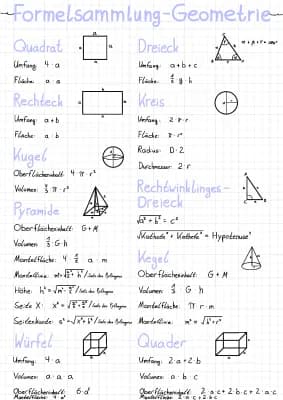 Formelsammlung-Geometrie
Quadrat
Umfang: 4·a
Fläche: a·a
Rechteck
Umfang: a+b
Fläche: a·b
Kugel
Oberflächeninhalt: 4·π·r²
Volumen: ·π·r³
Pyramide
Oberflächeninhalt: G+M
Volumen: ·G·h
Mantelfläche: 4· a·m
Mantellinie:
Höhe: h²=
Seite X: x²=
Seitenkante:
Würfel
Umfang: 4·a
Volumen: a·a·a
Oberflächeninhalt: 6·a²
Mantelfläche: 4·a²
Dreieck
Umfang: a+b+c
Fläche: ·g·h
Kreis
Umfang: 2·π·r
Fläche: π·r²
Radius: D:2
Durchmesser: 2·r
Rechtwinklinges-
Dreieck
√a²+b² = c²
√Kathete²+Kathete² = Hypotenuse²
Kegel
Oberflächeninhalt: G+M
Volumen: ·G·h
Mantelfläche: π·r·m
Mantellinie: m²=√h²+r²
Quader
Umfang: 2·a+2·b
Volumen: a·b·c
Oberflächeninhalt: 2·a·c+2·b·c+2·a·c
Mantelfläche: